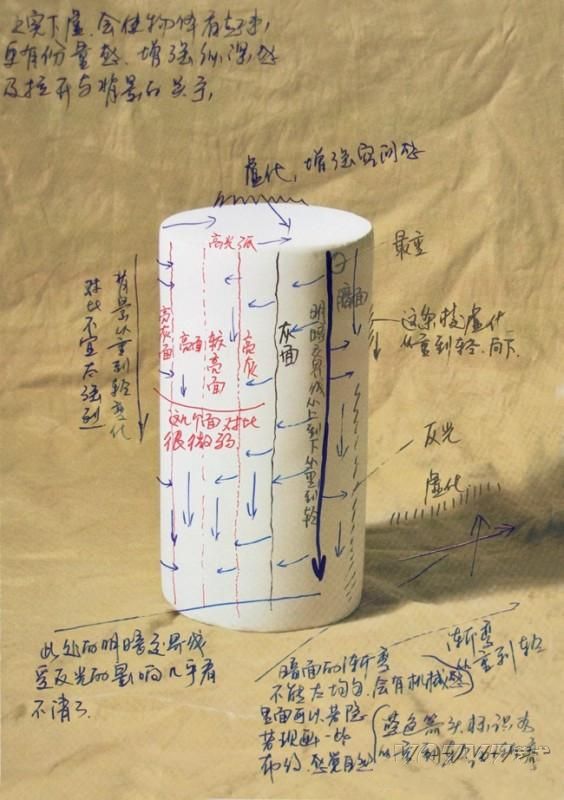 上实下虚.会使物体有起来,
更有份量感、增强纵深感
及拉开与背景的关系,
虚化,增强空间感
高光弧
最重
背景从重到轻变化
对比不宜太强烈
亮灰面
高面
较亮面
亮灰
灰面
明暗交界线从上到下从重到轻
暗面
这条线虚化
从重到轻.向下
这几个面对比
很微弱.
反光
虚化
此处的明暗交界线
受反光的影响几乎看
不清了.
渐变
从重到轻
暗面的渐变
不能太均匀.会有机械感
里面可以若隐
若现画一些
布纹.感觉自然
蓝色箭头标识为